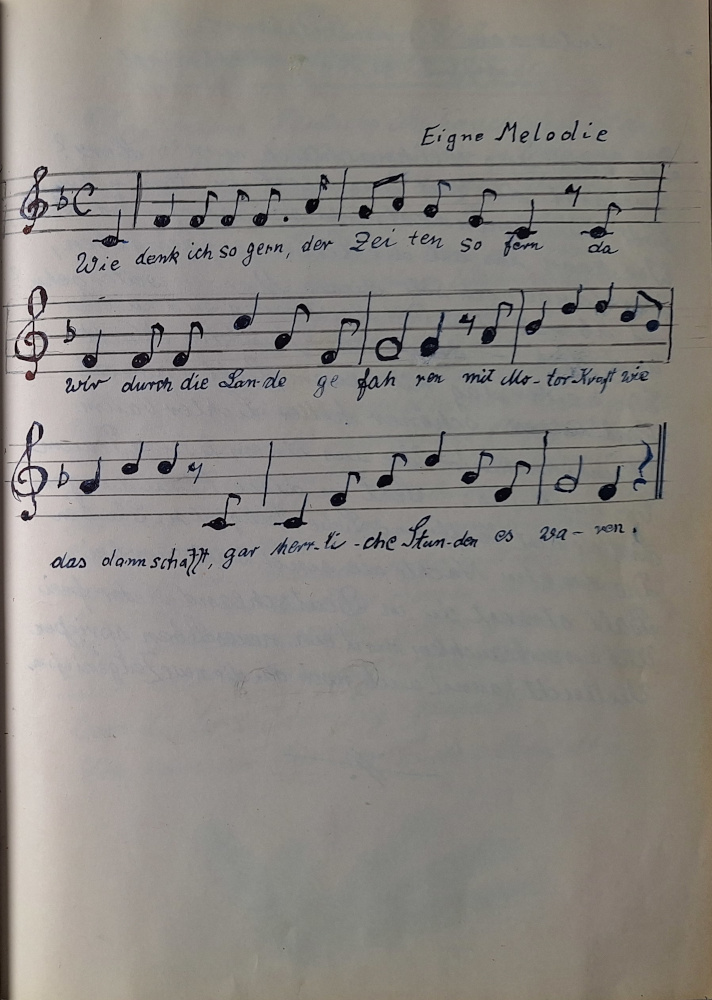 Eigne Melodie
Wie denk ich so gern, der Zei ten so fern da
wir durch die Lan-de ge fah ren mit Mo-tor-Kraft wie
das dann schafft, gar herr-li-che Stun-den es wa-ren.